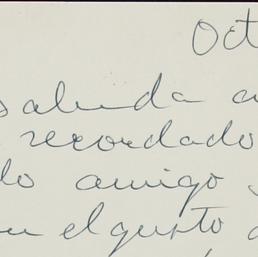 Oct
saluda a
recordado
lo amigo
el gusto